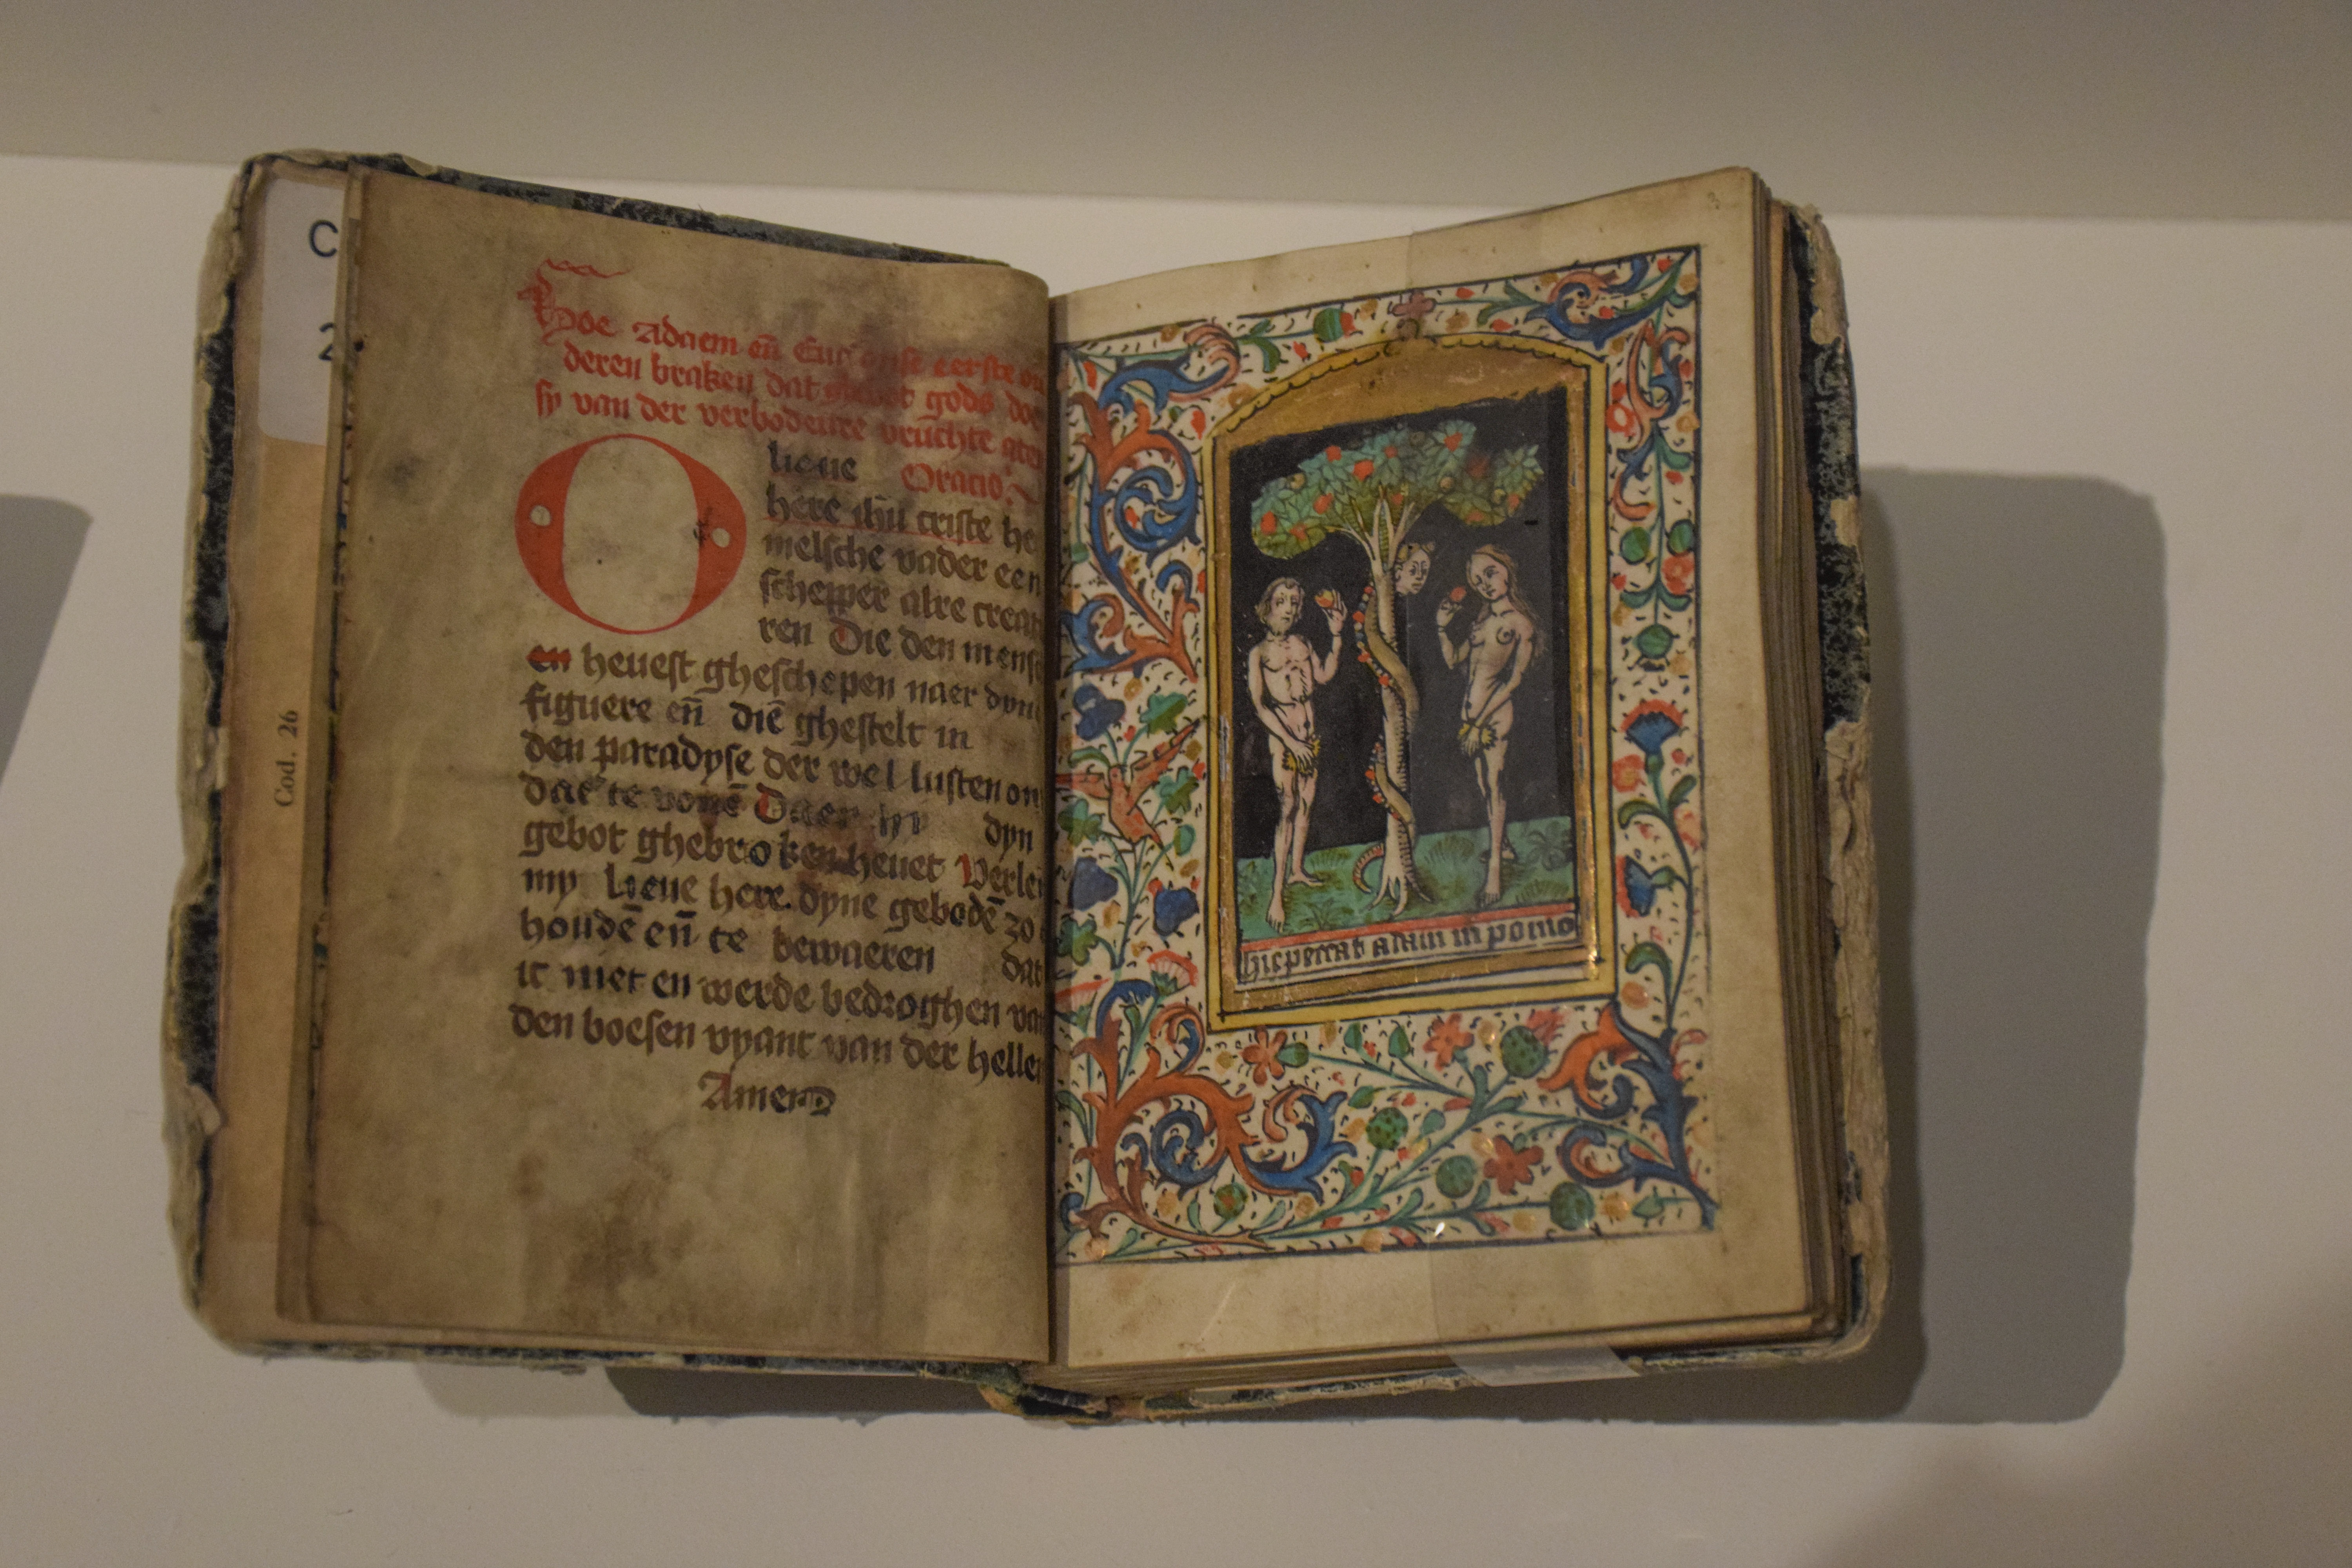 C
2
Cod. 26
Hoe Adaem en̄ Eua onse eerste ou
deren braken dat ghebot gods doe
sy van der verbodenre vruchte aten
O lieue Oratio
here ihū criste he
melsche vader een
schepper alre creat
ren Die den mens
en heuest gheschepen naer dyn
figuere en̄ diē ghestelt in
den paradyse der wel lusten om
dae te wonē Daer hy dyn
gebot ghebroken heuet Verlee
my lieue here dyne gebodē zo
houdē en̄ te bewaeren dat
ic niet en werde bedroghen va
den boesen vyant van der hellen
Amen
hic peccat adam in pomo